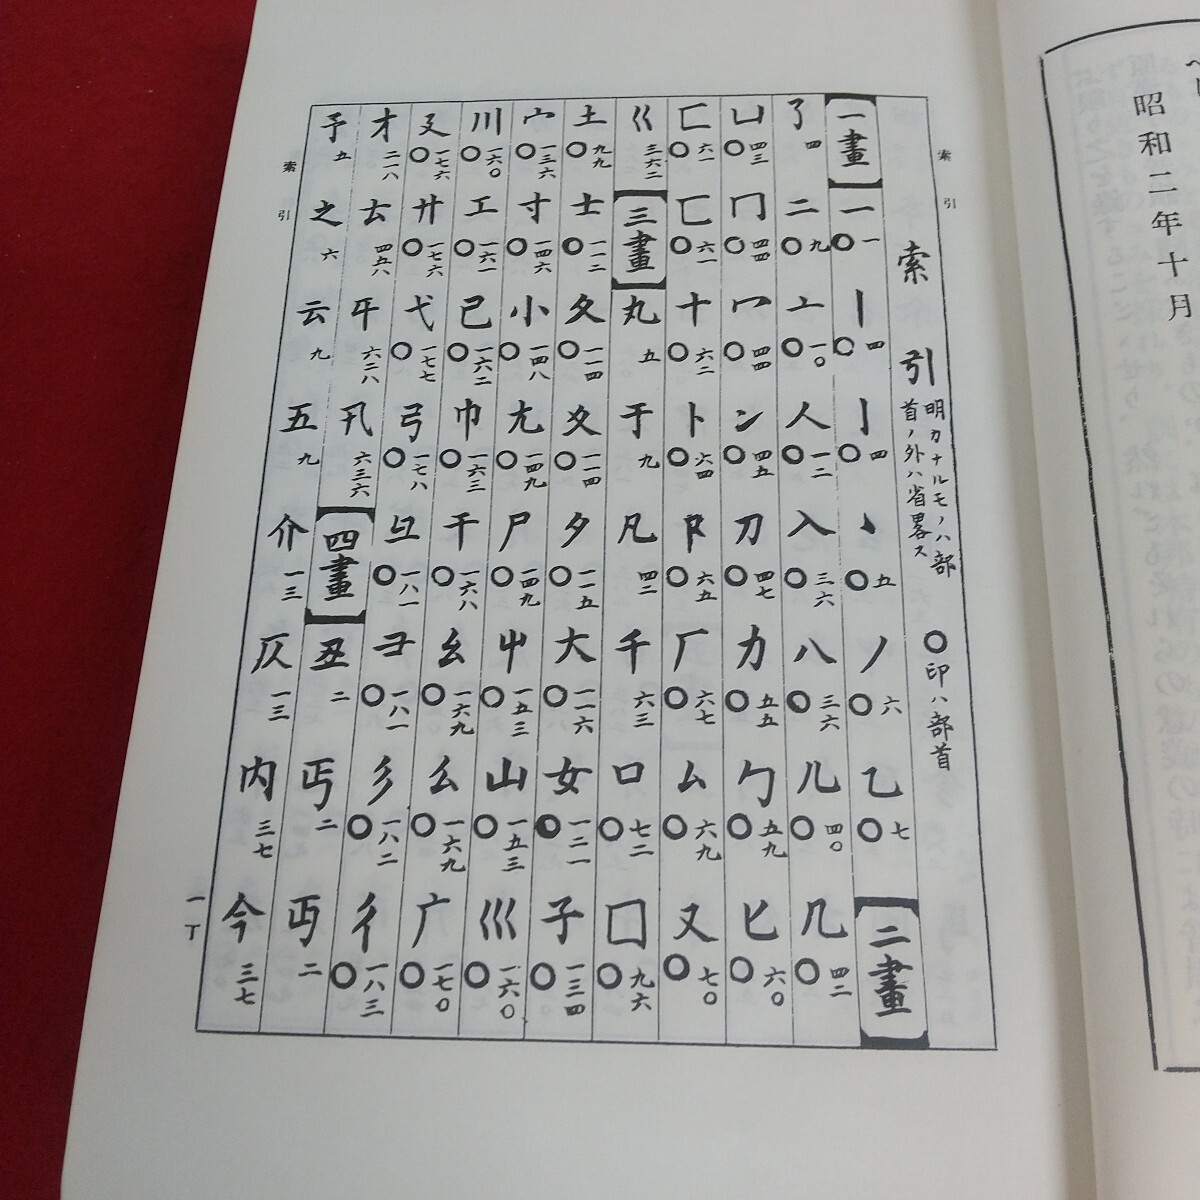 昭和二年十月
索引
索引
明カナルモノハ部
首ノ外ハ省畧ス
○印ハ部首
一畫
一 ○一
丨 ○四
亅 ○四
丶 ○五
丿 ○六
乙 ○七
二畫
了 四
二 ○九
亠 ○一〇
人 ○一二
入 ○三六
八 ○三六
儿 ○四〇
几 ○四二
凵 ○四三
冂 ○四四
冖 ○四四
冫 ○四五
刀 ○四七
力 ○五五
勹 ○五九
匕 ○六〇
匚 ○六一
匸 ○六一
十 ○六二
卜 ○六四
卩 ○六五
厂 ○六七
厶 ○六九
又 ○七〇
巜 三六二
三畫
丸 五
于 九
凡 四二
千 六三
口 ○七二
囗 ○九六
土 ○九九
士 ○一一二
夂 ○一一四
夊 ○一一四
夕 ○一一五
大 ○一一六
女 ○一二一
子 ○一三四
宀 ○一三六
寸 ○一四六
小 ○一四八
尢 ○一四九
尸 ○一四九
屮 ○一五三
山 ○一五三
巛 ○一六〇
川 ○一六〇
工 ○一六一
已 ○一六二
巾 ○一六三
干 ○一六八
幺 ○一六九
么 ○一六九
广 ○一七〇
廴 ○一七六
廾 ○一七六
弋 ○一七七
弓 ○一七八
彑 ○一八一
彐 ○一八一
彡 ○一八二
彳 ○一八三
才 二一八
厷 四五八
㐄 六二八
卂 六三六
四畫
丑 二
丐 二
丏 二
予 五
之 六
云 九
五 九
介 一三
仄 一三
内 三七
今 三七
索引
一丁